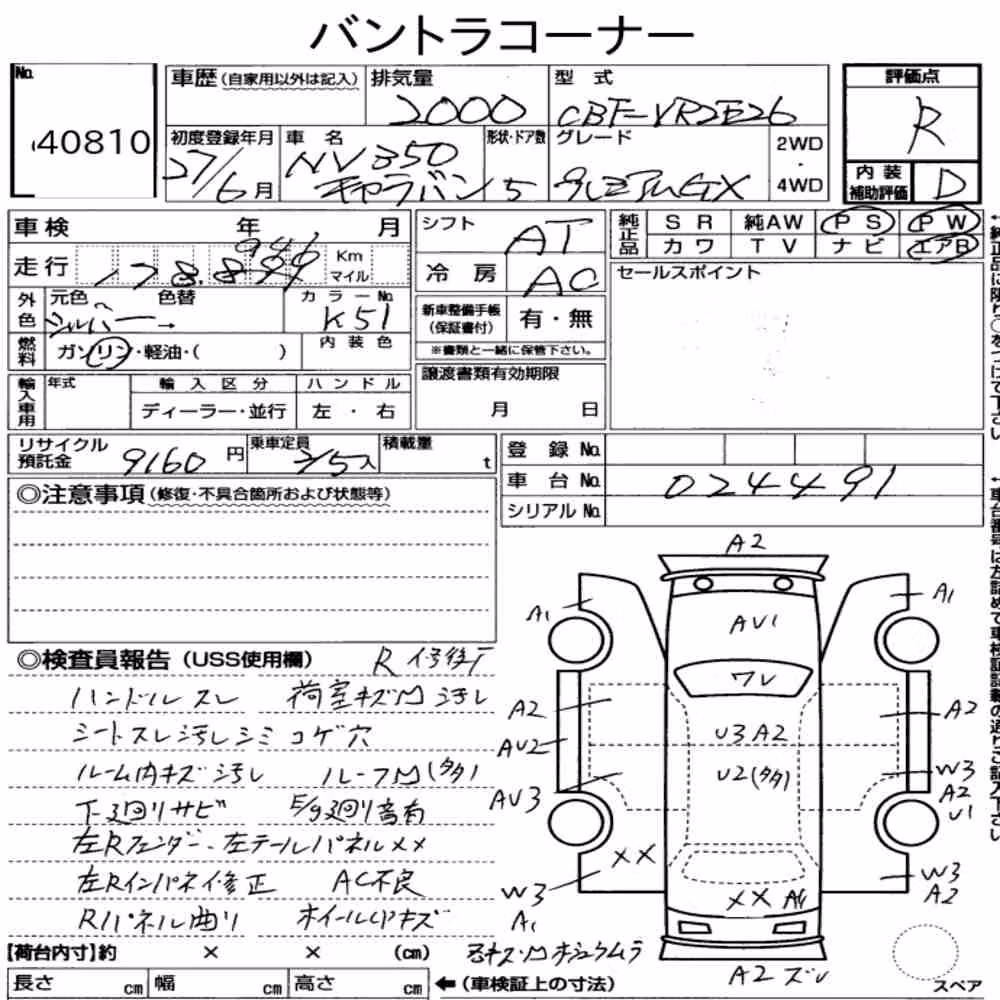 バントラコーナー
No.
40810
車歴 (自家用以外は記入)
排気量
2000
型式
CBF-VR2E26
評価点
R
初度登録年月
27/6月
車名
NV350
キャラバン
形状・ドア数
5
グレード
プレミアムGX
2WD
・
4WD
内装
補助評価
D
車検 年 月
走行 178,894
944
Km
マイル
外色
元色 色替
シルバー→
カラーNo.
K51
燃料
ガソリン・軽油・( )
内装色
輸入車用
年式
輸入区分
ディーラー・並行
ハンドル
左・右
シフト
AT
冷房
AC
新車整備手帳
(保証書付)
有・無
※書類と一緒に保管下さい。
譲渡書類有効期限
月 日
純正品
SR 純AW PS PW
カワ TV ナビ エアB
セールスポイント
リサイクル
預託金
9160円
乗車定員
2/5人
積載量
t
登録No.
車台No.
024491
シリアルNo.
◎注意事項(修復・不具合箇所および状態等)
◎検査員報告(USS使用欄) R修復有
ハンドルスレ 荷室キズM汚レ
シートスレ汚レシミコゲ穴
ルーム内キズ汚レ ルーフM(多々)
下廻リサビ E/g廻リ音有
左Rフェンダー、左テールパネルXX
左Rインパネ修正 AC不良
Rパネル曲リ ホイールCPキズ
【荷台内寸】約 × × (cm)
長さ cm 幅 cm 高さ cm
←(車検証上の寸法)
A2
A1
A1
AU1
ワレ
A2
AU2
AU3
U3 A2
U2(多々)
A2
W3
A2
U1
XX
W3
A1
XX A1
W3
A2
A2 ズレ
スペア